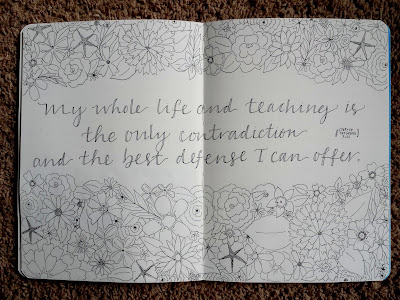 My whole life and teaching is
the only contradiction
and the best defense I can offer.